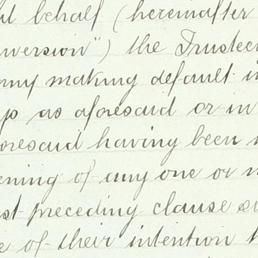 behalf (hereinafter
version") the Trustee
making default in
as aforesaid or in
foresaid having been
ening of any one or
st preceding clause
e of their intention